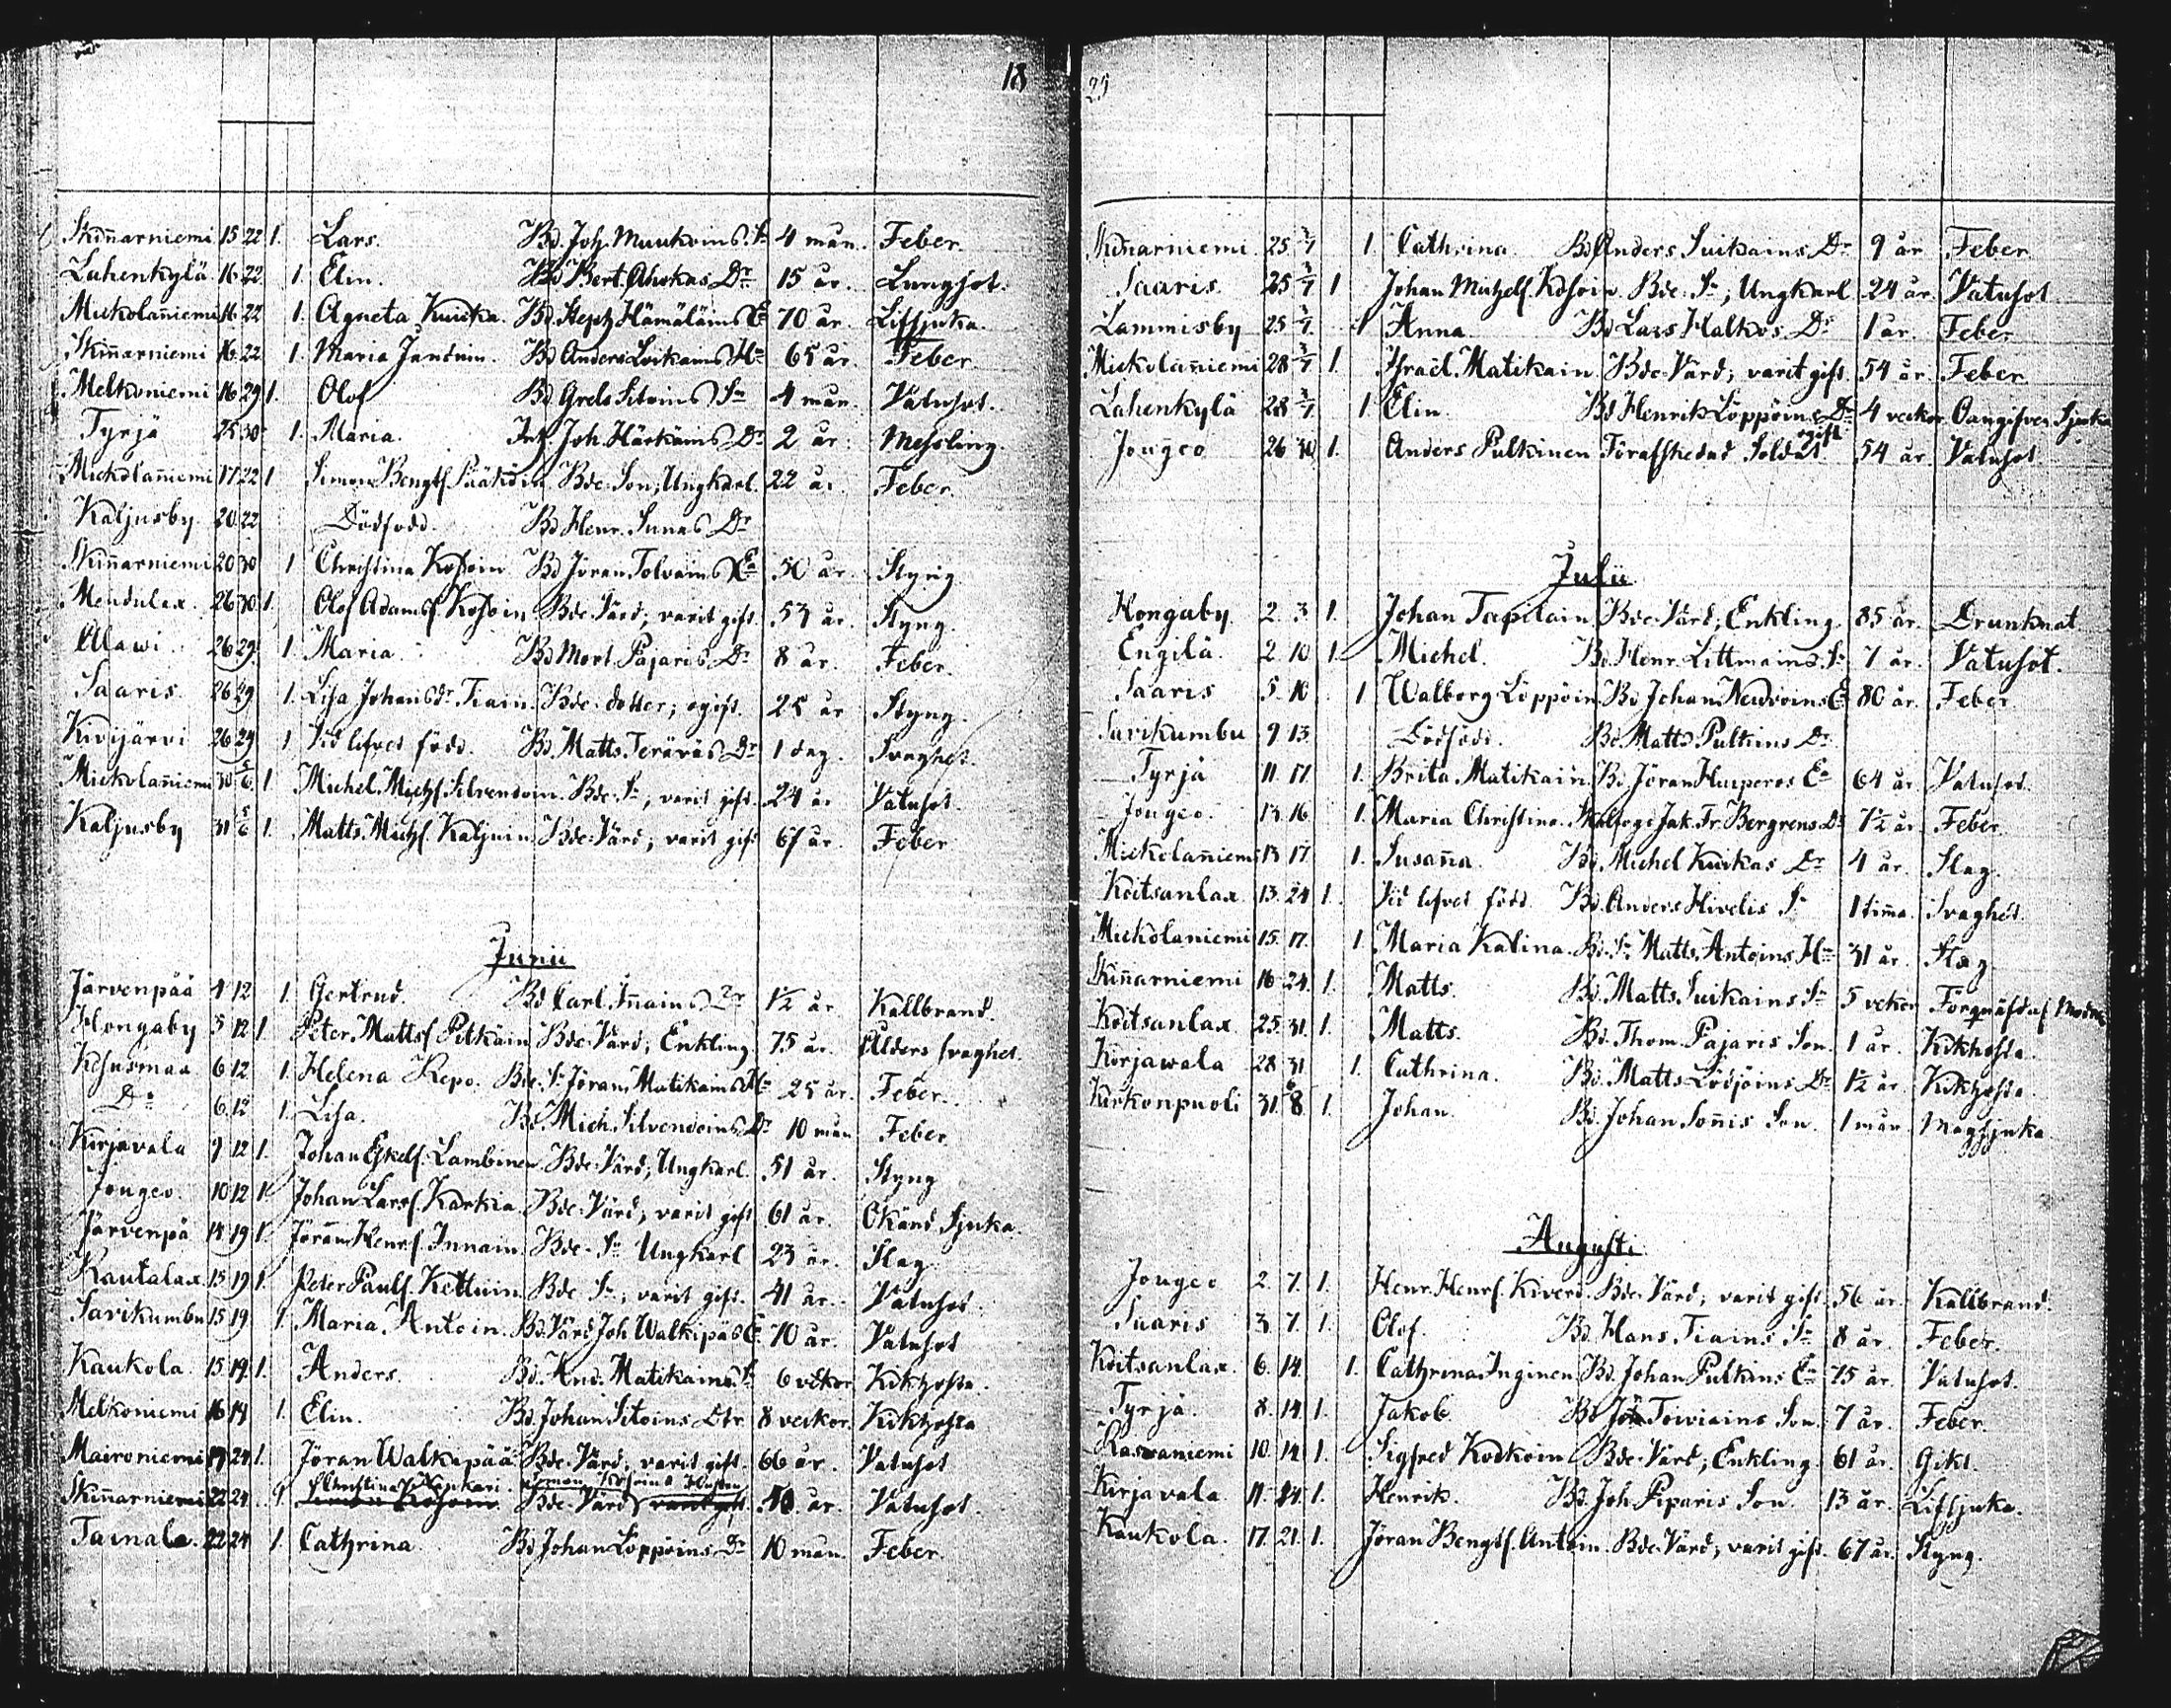 18
Skinnarniemi 15 22 1. Lars. Bd. Joh. Muukoins Sn 4 mån. Feber.
Lahenkylä 16 22 1. Elin. Bd Bert. Ahokas Dr 15 år. Lungsot.
Mickolaniemi 16 22 1. Agneta Kuicka. Bd. Steph Hämäläins E 70 år. Lifsjuka.
Skinnarniemi 16 22 1. Maria Jantuin. Bd Anders Loikains Hu 65 år Feber.
Melkoniemi 16 29 1. Olof Bd Grels Sitoins Sn 4 mån. Vatusot.
Tyrjä 25 30 1. Maria. Inh. Joh. Härkäins Dr 2 år. Messling.
Mickolaniemi 17 22 1 Simon Bengts. Pääköin Bde Son, Ungkarl. 22 år. Feber.
Kaljusby 20 22 Dödfödd. Bd Henr. Sunas Dr
Skinnarniemi 20 30 1 Christina Kosoin Bd Jöran Tolvains Ea 50 år. Styng
Mendulax. 26 30 1. Olof Adams. Kosoin Bde Värd; varit gift. 53 år. Styng.
Alawi 26 29. 1. Maria. Bd Mort. Pajaris Dr 8 år. Feber.
Saaris 26 29 1. Lisa Johansdr Tiain. Bde dotter; ogift. 25 år Styng.
Kivijärvi 26 29 1 Vid lifvet född. Bd. Matts Teräväs Dr 1 dag. Svaghet.
Mickolaniemi 30 5/6 1 Michel Michs. Silvendoin. Bde Sn, varit gift. 24 år Vatusot.
Kaljusby 31 5/6 1. Matts. Michs. Kaljuin Bde Värd; varit gift 67 år. Feber
Junii
Järvenpää 4 12 1. Gertrud. Bd Carl Innains Dr 1½ år Kallbrand.
Hongaby 5 12 1. Peter Matts. Pitkäin Bde Värd, Enkling 75 år. Ålders svaghet.
Kosusmaa 6 12 1. Helena Repo. Bde Sn Jöran Matikains Hu 25 år. Feber.
Do 6 12 1. Lisa. Bd Mich. Silvendoins Dr 10 mån Feber.
Kirjavala 9 12 1. Johan Eskels. Lambinen Bde Värd; Ungkarl. 51 år. Styng
Jougeo. 10 12 1. Johan Lars. Karkia Bde Värd; varit gift 61 år. Okänd Sjuka.
Järvenpä 14 19 1. Jöran Henrs. Innain. Bde Sn Ungkarl 23 år. Slag.
Rautalax. 15 19 1. Peter Pauls. Kettuin Bde Sn; varit gift. 41 år. Vatusot.
Sarikumbu 15 19 1. Maria Antoin. Bd. Värd Joh. Walkipäs E. 70 år. Vatusot
Kaukola. 15 19. 1. Anders. Bd. And. Matikains S. 6 veckor Kikhosta.
Melkoniemi 16 19 1. Elin. Bd. Johan Sitoins Dtr 8 veckor. Kikhosta
Maironiemi 19 24 1. Jöran Walkipää Bde Värd, varit gift. 66 år. Vatusot
Christina Kankari. Simon Kosoins Hustru
Skinnarniemi 22 24 1. Simon Kosoin Bde Värd varit gift 50 år. Vatusot.
Tainala. 22 24 1. Cathrina. Bd Johan Löppöins Dr 10 mån. Feber.
25
Skinarniemi. 25 3/7 1. Cathrina. Bd Anders Suikains Dr 9 år Feber
Saaris. 25 3/7 1 Johan Michels. Kosoin. Bde Sn; Ungkarl 24 år. Vatusot
Lammisby 25 3/7 1 Anna. Bd Lars Halkos Dr 1 år. Feber
Mickolaniemi 28 3/7 1. Israël Matikain Bde Värd; varit gift. 54 år. Feber
Lahenkylä 28 3/7 1. Elin. Bd Henrik Löppöins Dr 4 veckor. Oangifven Sjuka
Jougeo 26 30 1. Anders Pulkinen Förafskedad Soldat gift 54 år. Vatusot
Julii
Hongaby 2 3 1. Johan Tapilain Bde Värd; Enkling. 85 år. Drunknat
Engilä. 2 10 1. Michel. Bd. Henr. Littmains Sn 7 år. Vatusot.
Saaris 5 10 1 Walborg Löppöin Bd Johan Neuvoins E 80 år. Feber
Sarikumbu 9 13. Dödfödd. Bd Matts Pulkins Dr
Tyrjä 11. 17. 1. Brita Matikain Bd Jöran Huiperos Ea 64 år. Vatusot.
Jougeo. 13. 16 1. Maria Christina. Skallfogd Jak. Fr. Bergrens Dr 7½ år Feber.
Mickolaniemi 13 17 1. Susanna. Bd. Michel Kuikas Dr 4 år. Slag.
Koitsanlax 13. 24 1. Vid lifvet född. Bd. Anders Hivelis Sn 1 timma. Svaghet.
Mickolaniemi 15. 17. 1 Maria Kalina. Bd. Sn Matts Antoins Hu 31 år. Slag
Skinnarniemi 16 24. 1. Matts. Bd. Matts Suikains Sn 5 veckor Förqväfd af Modren
Koitsanlax 25. 31. 1. Matts. Bd. Thom. Pajaris Son. 1 år. Kikhosta.
Kirjawala 28 31 1. Cathrina. Bd. Matts Lödjöins Dr 1½ år. Kikhosta.
Kirkonpuoli 31 6/8 1. Johan. Bd. Johan Sonnis Son. 1 mån. Magsjuka.
Augusti
Jougeo 2. 7. 1. Henr. Henrs. Kiverd. Bde Värd; varit gift. 56 år. Kallbrand.
Saaris 3. 7. 1. Olof. Bd. Hans Tiains Sn 8 år. Feber.
Koitsanlax. 6. 14. 1. Cathrina Inginen Bd. Johan Pulkins Ea 75 år. Vatusot.
Tyrjä. 8. 14 1. Jakob Bd Joh Toiviains Son. 7 år. Feber.
Rasvaniemi 10. 14 1. Sigfred Kodkoin Bde Värd; Enkling 61 år. Gikt.
Kirjavala 11. 14 1. Henrik. Bd. Joh. Piparis Son. 13 år. Lifsjuka.
Kaukola. 17. 21. 1. Jöran Bengts. Antoin. Bde Värd; varit gift. 67 år. Styng.